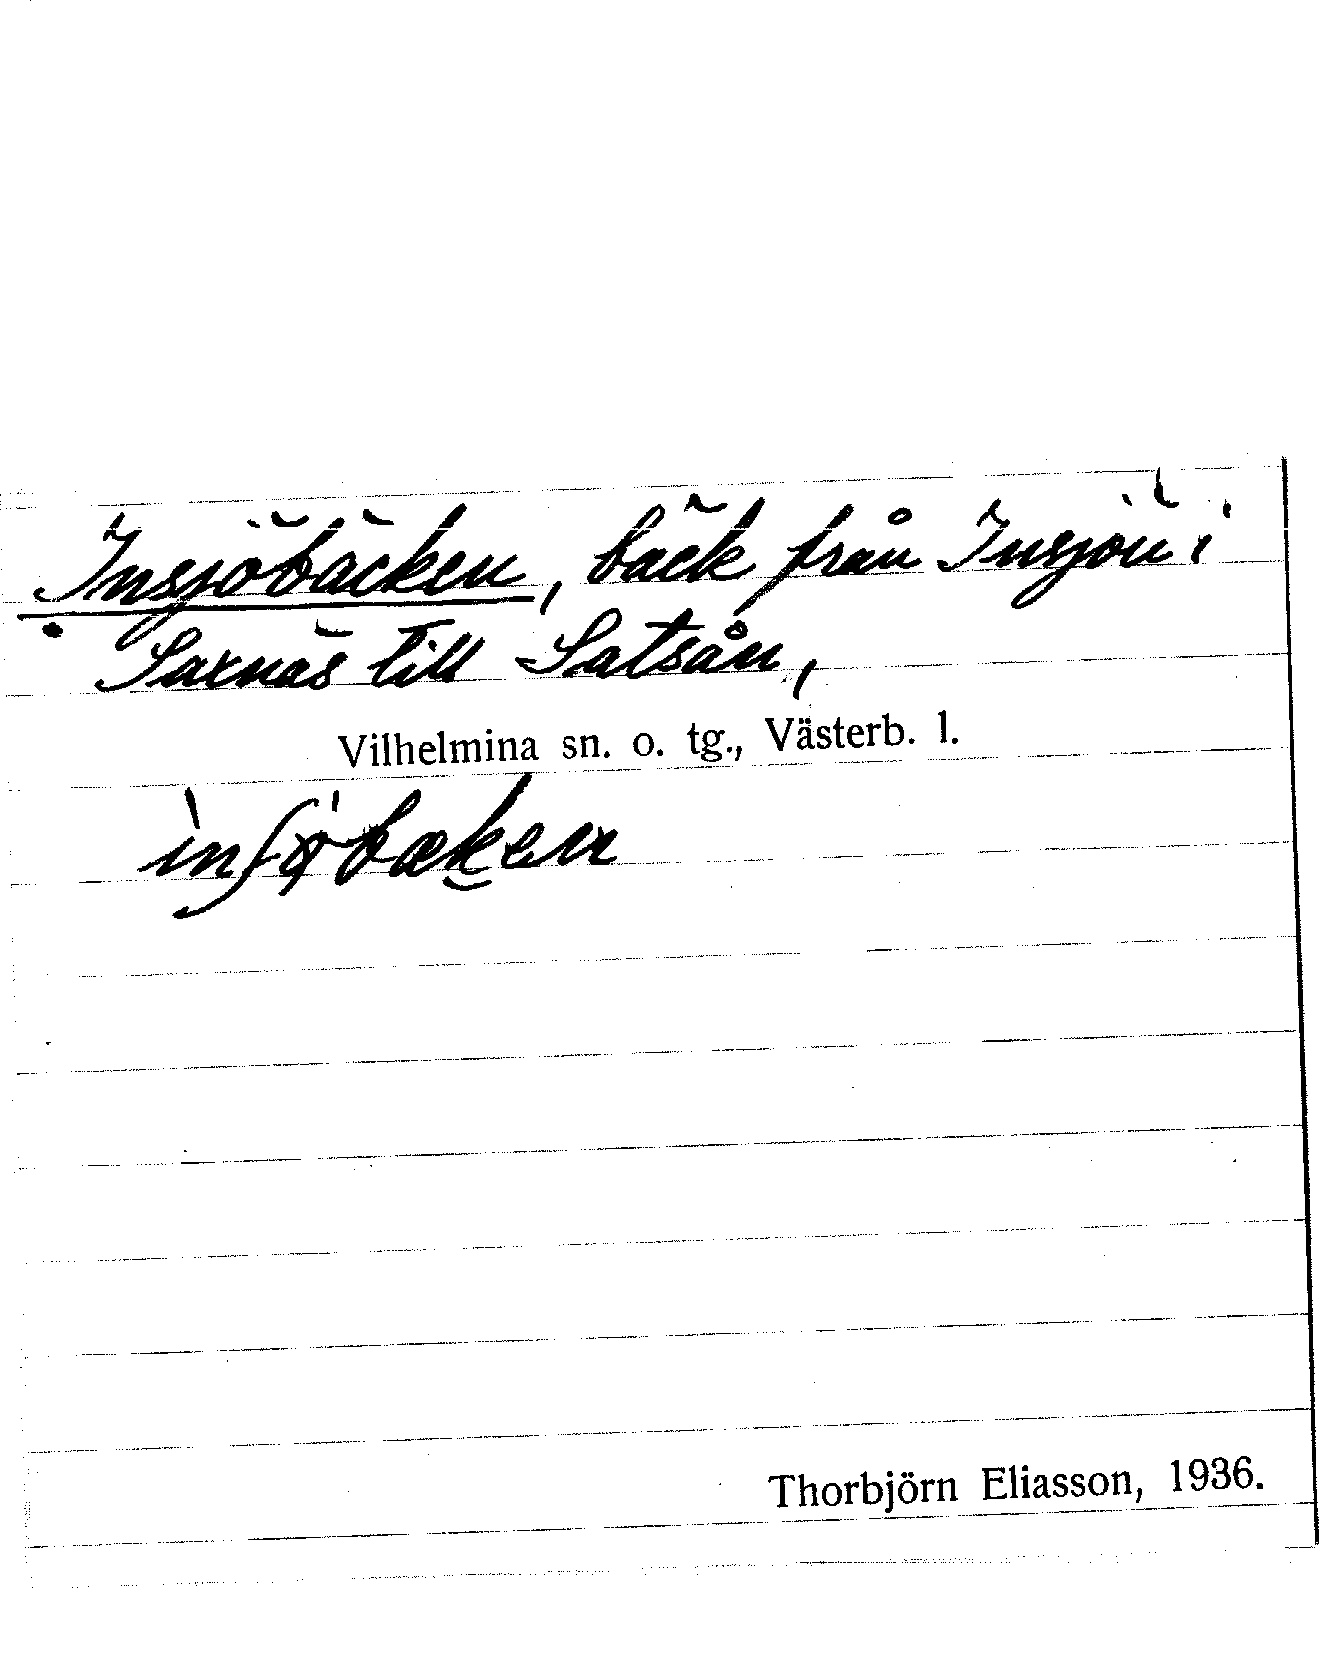 Insjöbäcken, bäck från Insjön i
Saxnäs till Satsån,
Vilhelmina sn. o. tg., Västerb. l.
Thorbjörn Eliasson, 1936.